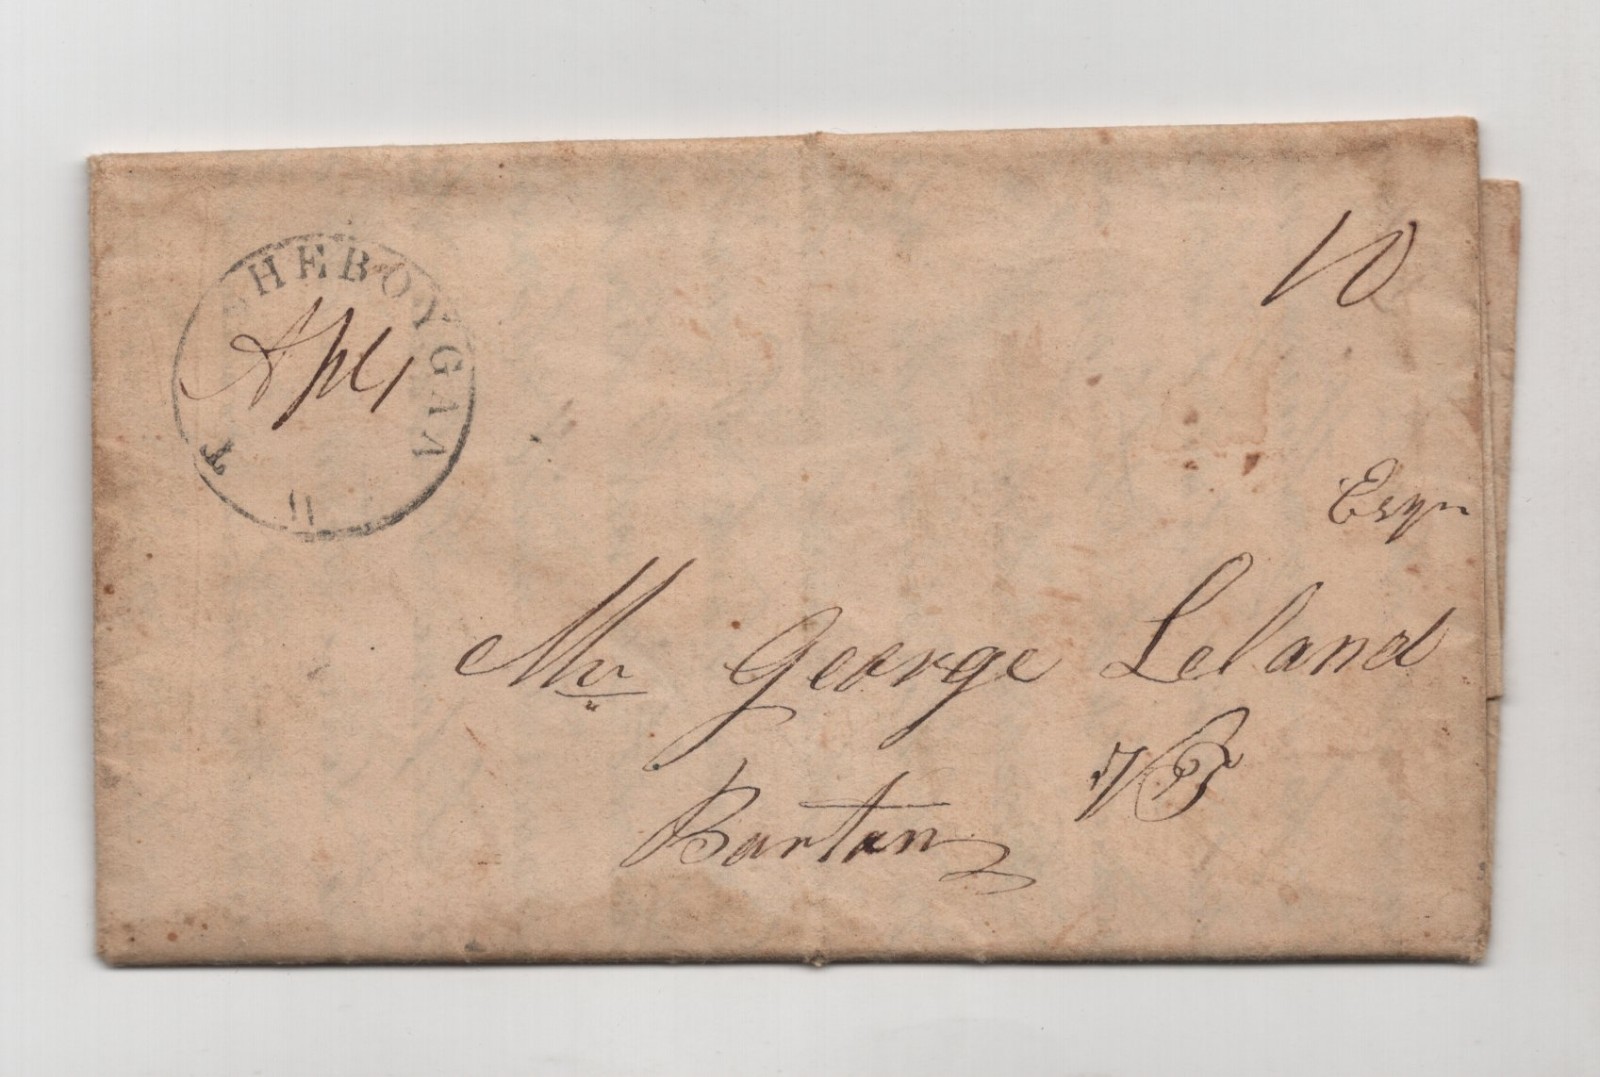 SHEBOYGAN W T
Apl 1
10
Esqr
Mr George Leland
Barton
VT